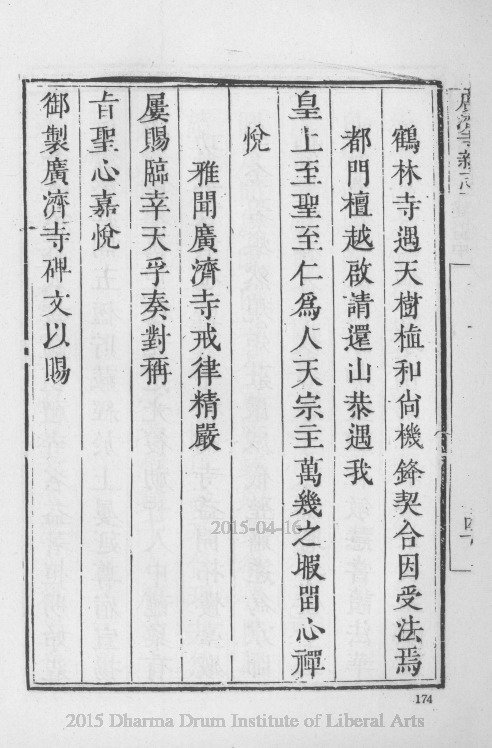 鶴林寺遇天樹植和尙機鋒契合因受法焉
都門檀越啟請還山恭遇我
皇上至聖至仁爲人天宗主萬幾之暇畱心禪
悅
雅聞廣濟寺戒律精嚴
屢賜臨幸天孚奏對稱
旨聖心嘉悅
御製廣濟寺碑文以賜
174
2015-04-16
2015 Dharma Drum Institute of Liberal Arts